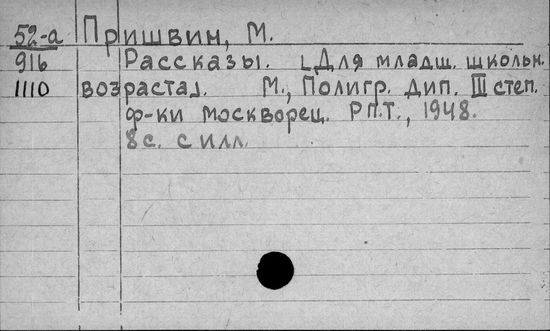 52-а Пришвин, М.
916 Рассказы. [Для младш. школьн.
1110 возраста]. М., Полигр. дип. III степ.
ф-ки москворец. РПТ., 1948.
8с. с илл.